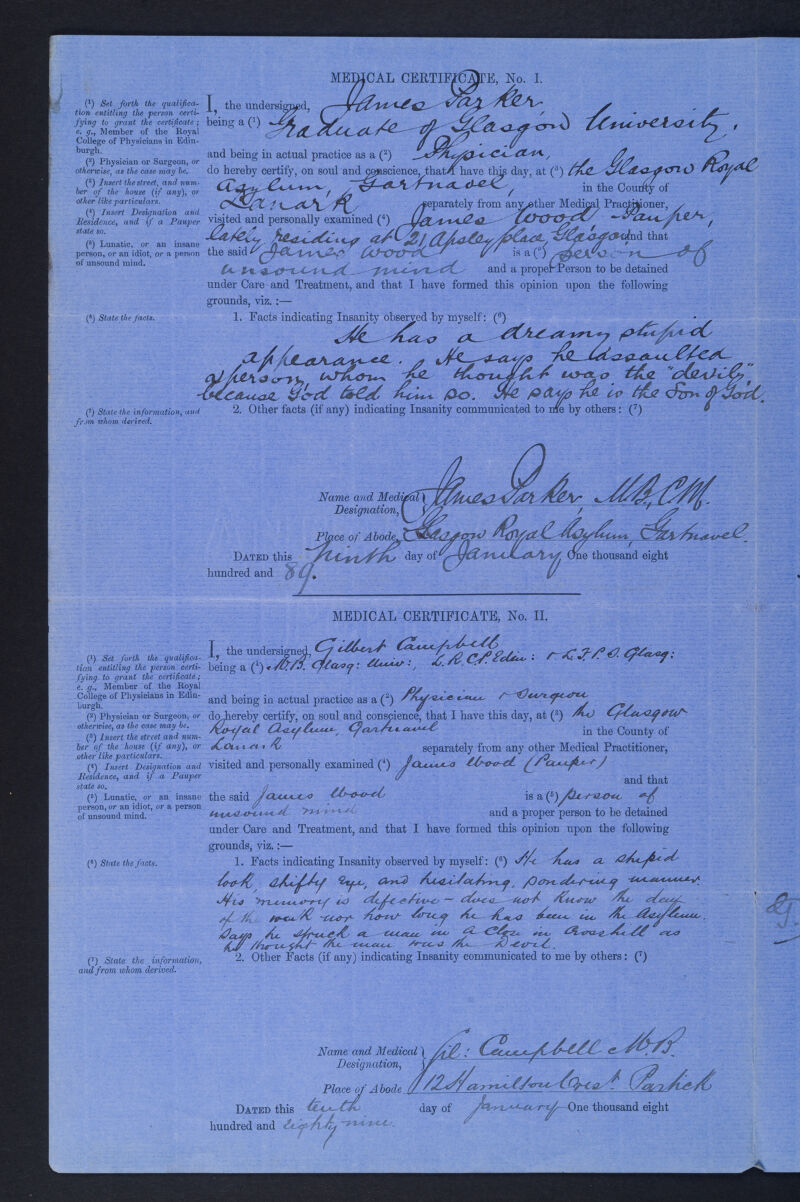 MEDICAL CERTIFICATE, No. I.
(¹) Set forth the qualifica-
tion entitling the person certi-
fying to grant the certificate;
e. g., Member of the Royal
College of Physicians in Edin-
burgh.
I, the undersigned, James Parker
being a (¹) Graduate of Glasgow University.
(²) Physician or Surgeon, or
otherwise, as the case may be.
and being in actual practice as a (²) Physician,
(³) Insert the street, and num-
ber of the house (if any), or
other like particulars.
do hereby certify, on soul and conscience, that I have this day, at (³) the Glasgow Royal
Asylum, Gartnavel, in the County of
Lanark separately from any other Medical Practitioner,
(⁴) Insert Designation and
Residence, and if a Pauper
state so.
visited and personally examined (⁴) James Wood, Pauper,
lately residing at 21 Apsley place, Glasgow, and that
(⁵) Lunatic, or an insane
person, or an idiot, or a person
of unsound mind.
the said James Wood is a (⁵) person of
unsound mind and a proper Person to be detained
under Care and Treatment, and that I have formed this opinion upon the following
grounds, viz. :—
(⁶) State the facts.
1. Facts indicating Insanity observed by myself: (⁶)
He has a dreamy stupid
appearance. He says he assaulted
a person, whom he thought was the "devil",
because God told him so. He says he is the Son of God.
(⁷) State the information, and
from whom derived.
2. Other facts (if any) indicating Insanity communicated to me by others: (⁷)
Name and Medical Designation, James Parker, M.B., C.M.
Place of Abode, Glasgow Royal Asylum, Gartnavel.
DATED this ninth day of January One thousand eight
hundred and 89.
MEDICAL CERTIFICATE, No. II.
(¹) Set forth the qualifica-
tion entitling the person certi-
fying to grant the certificate;
e. g., Member of the Royal
College of Physicians in Edin-
burgh.
I, the undersigned, Gilbert Campbell
being a (¹) M.B. Glasg: Univ:, L.R.C.P. Edin: & L.F.P.S. Glasg:
(²) Physician or Surgeon, or
otherwise, as the case may be.
and being in actual practice as a (²) Physician & Surgeon
(³) Insert the street and num-
ber of the house (if any), or
other like particulars.
do hereby certify, on soul and conscience, that I have this day, at (³) the Glasgow
Royal Asylum, Gartnavel in the County of
Lanark separately from any other Medical Practitioner,
(⁴) Insert Designation and
Residence, and if a Pauper
state so.
visited and personally examined (⁴) James Wood (Pauper)
and that
(⁵) Lunatic, or an insane
person, or an idiot, or a person
of unsound mind.
the said James Wood is a (⁵) person of
unsound mind and a proper person to be detained
under Care and Treatment, and that I have formed this opinion upon the following
grounds, viz. :—
(⁶) State the facts.
1. Facts indicating Insanity observed by myself: (⁶) He has a stupid
look, shifty eye, and hesitating, pondering manner.
His memory is defective – does not know the day
of the week nor how long he has been in the Asylum.
Says he struck a man in a Close in Crosshill as
he thought the man was the Devil.
(⁷) State the information,
and from whom derived.
2. Other Facts (if any) indicating Insanity communicated to me by others: (⁷)
Name and Medical Designation, Gil: Campbell M.B.
Place of Abode 12 Hamilton Cres.t Partick
DATED this tenth day of January One thousand eight
hundred and eighty nine.